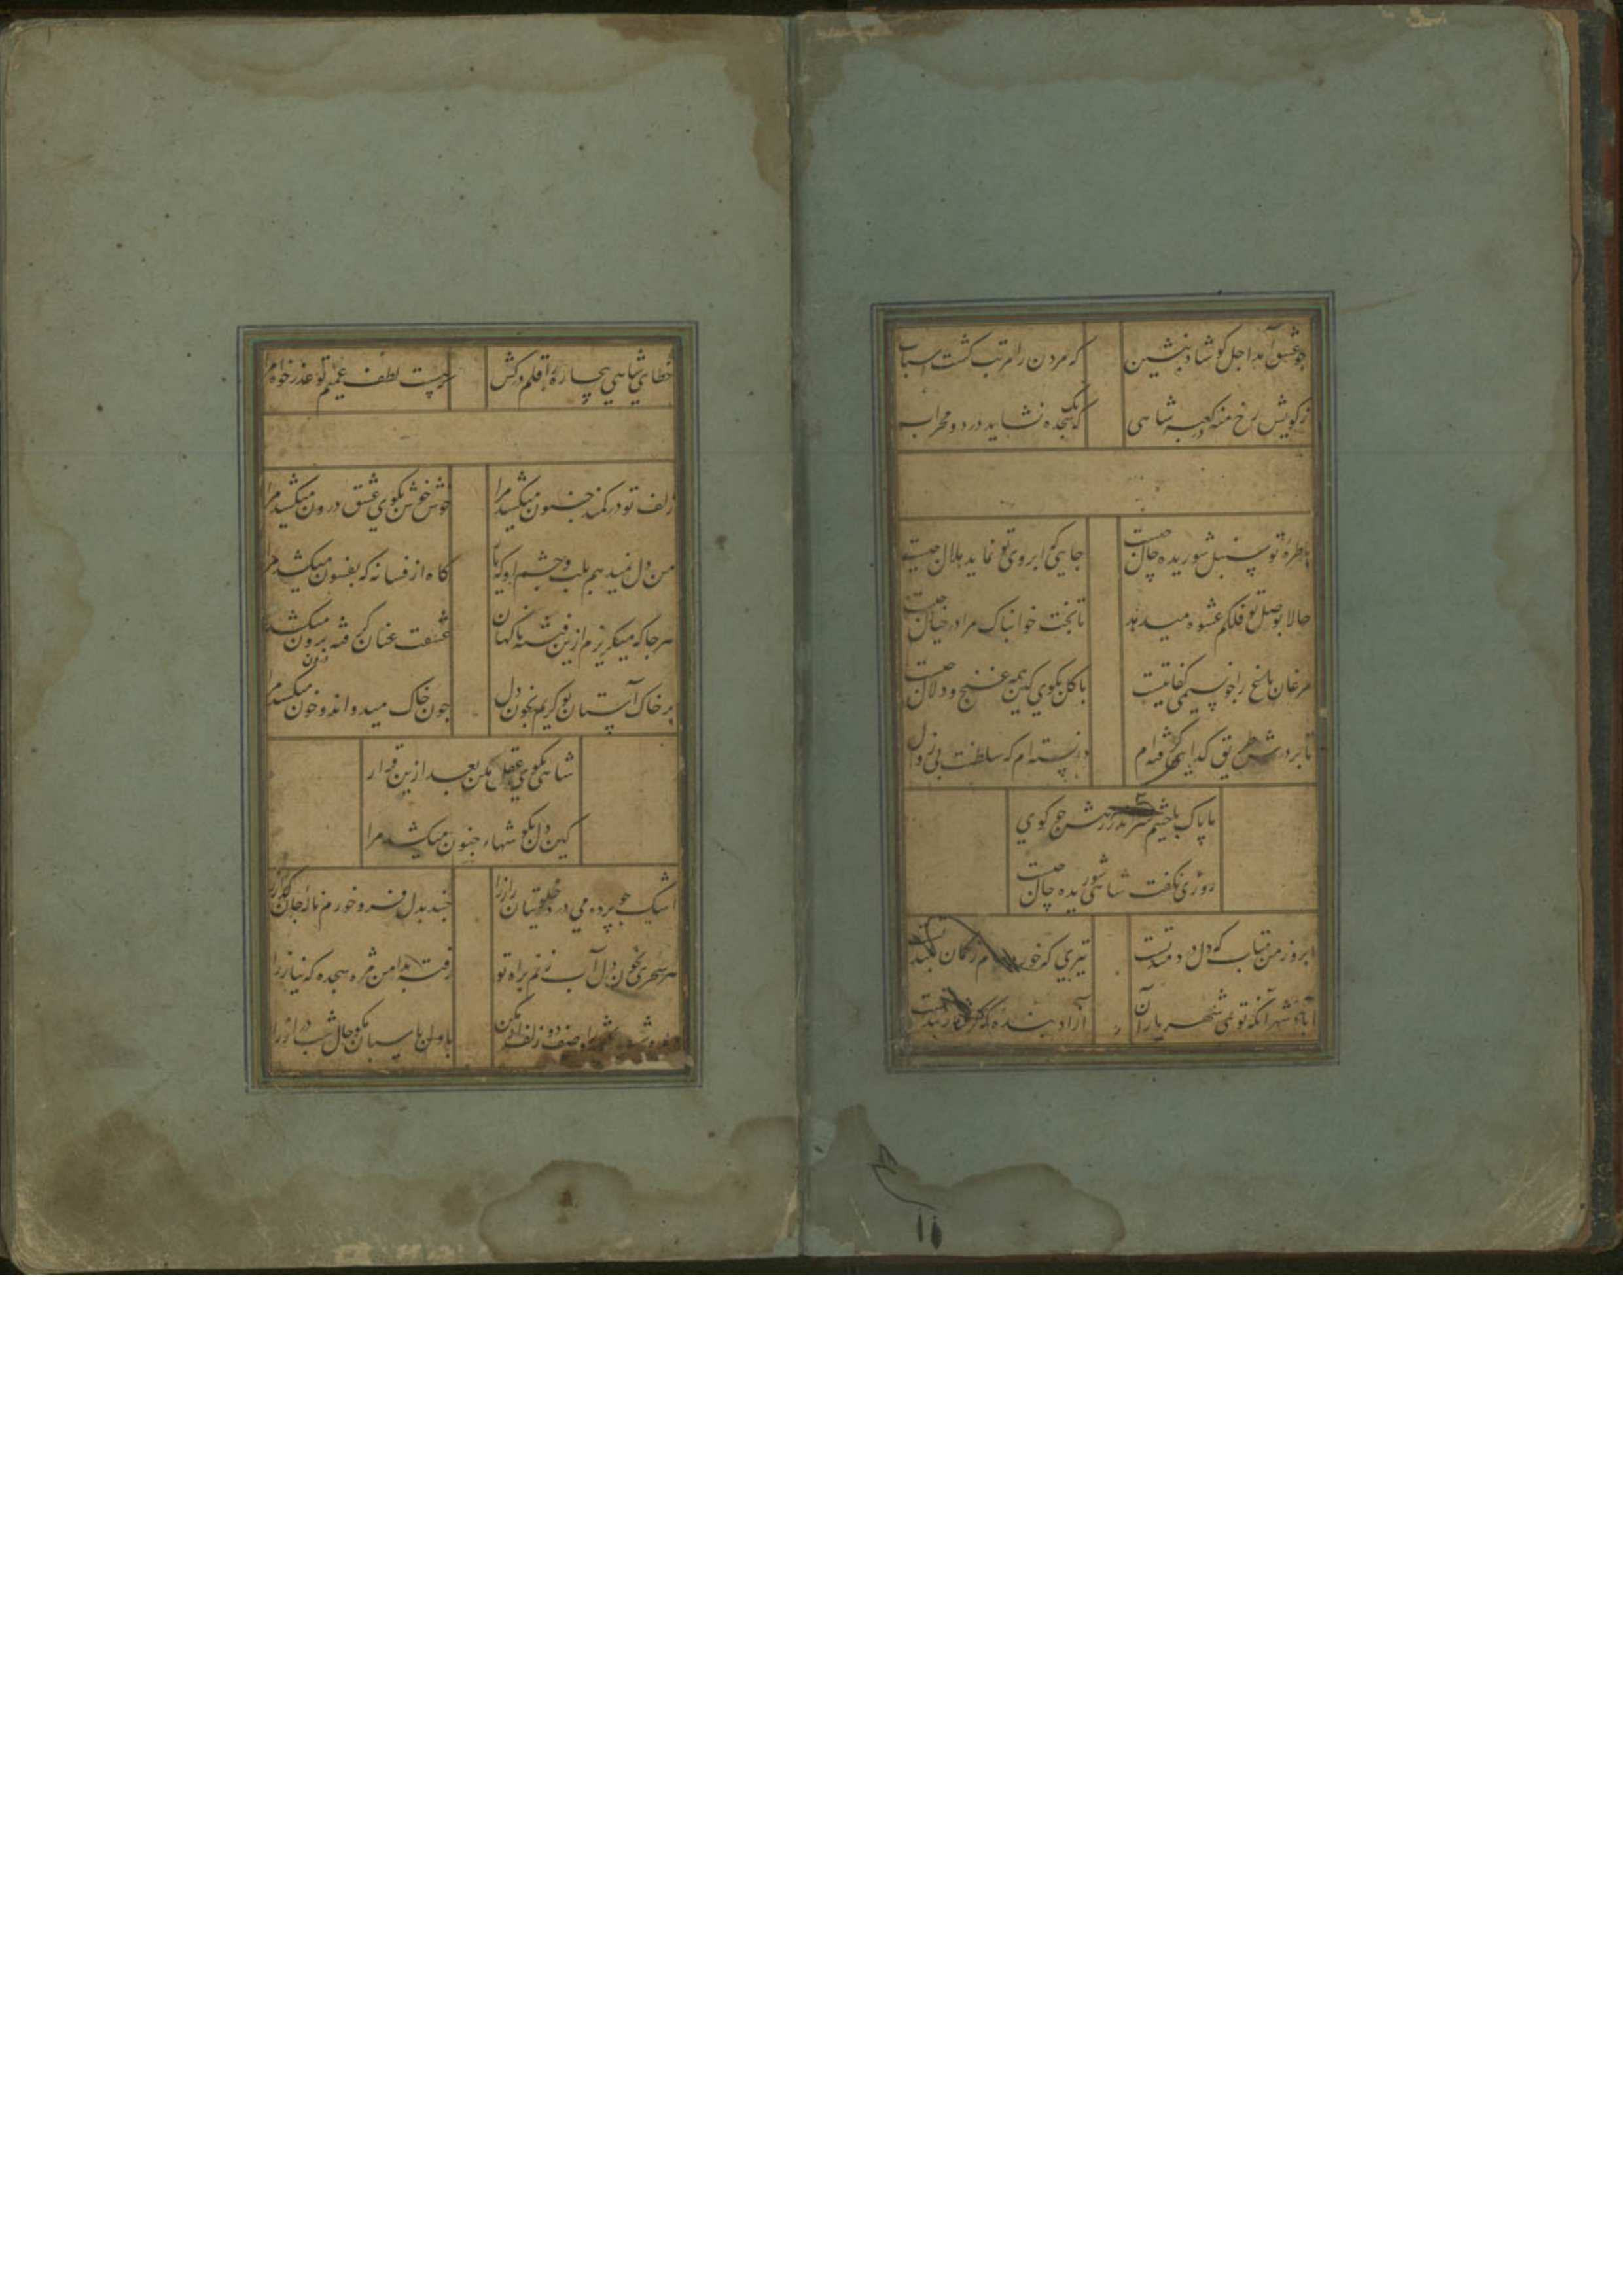 چو عشق آمد اجل کو شاد بنشین که مردن را مرتب گشت اسباب
زکویش رخ منه در کعبه شاهی که یک سجده نشاید در دو محراب
با طره تو سنبل شوریده حال چیست جایی که ابروی تو نماید هلال چیست
حالا بوصل تو فلکم عشوه میدهد تا بخت خوابناک مرا در خیال چیست
مرغان باغ را چو نسیمی کفایتست با گل بگوی کین همه غنج و دلال چیست
تا بر درش طریق گدایی گرفته ام دانسته ام که سلطنت بی زوال چیست
ما پاک باختیم سر اندر رهش چو گوی
روزی نگفت شاهی شوریده حال چیست
ابرو ز من متاب که دل دردمند تست تیری که خورده ام ز کمان بلند تست
آباد شهر آنکه تویی شهریار آن آزاد بنده که گرفتار بند تست
۱۱
خطای شاهی بیچاره را قلم درکش چیست لطف عمیم تو عذر خواه مرا
زلف تو در کمند جنون میکشد مرا خوش خوش بکوی عشق درون میکشد مرا
من دل نمیدهم بلب و چشم او که تا گاه از فسانه که بفسون میکشد مرا
هر جا که میگریزم ازین فتنه ناگهان عشقت عنان گرفته برون میکشد مرا
بر خاک آستان تو گریم بخون دل چون خاک میدواند و خون میکشد مرا
شاهی بکوی عقل مکن بعد ازین قرار
کین دل بکو شهاء جنون میکشد مرا
اشک چو پرده می درد خلوتیان راز را چند بدل فرو خورم ناله جان گداز را
هر سحری بخون دل آب زنم براه تو رفته بدامن مژه سجده که نیاز را
با دل پاسبان بگو حال شب دراز را